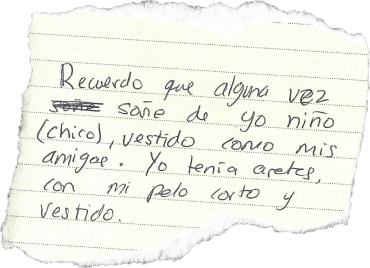 Recuerdo que alguna vez
soñe de yo niño
(chico), vestido como mis
amigas. Yo tenía aretes,
con mi pelo corto y
vestido.